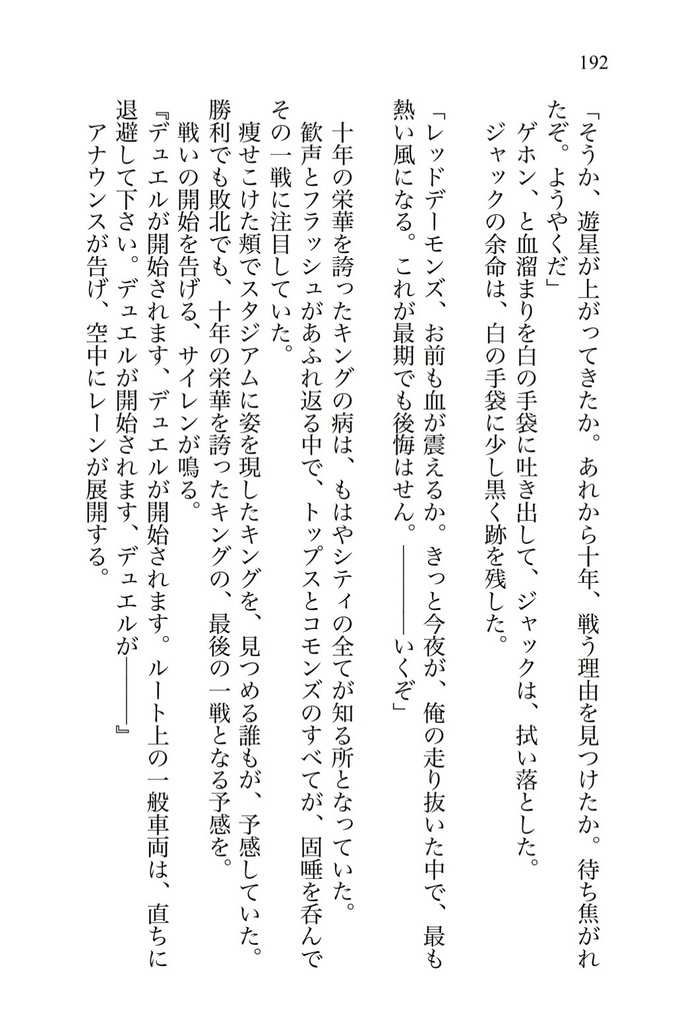 192
「そうか、遊星が上がってきたか。あれから十年、戦う理由を見つけたか。待ち焦がれ
たぞ。ようやくだ」
ゲホン、と血溜まりを白の手袋に吐き出して、ジャックは、拭い落とした。
ジャックの余命は、白の手袋に少し黒く跡を残した。
「レッドデーモンズ、お前も血が震えるか。きっと今夜が、俺の走り抜いた中で、最も
熱い風になる。これが最期でも後悔はせん。――――いくぞ」
十年の栄華を誇ったキングの病は、もはやシティの全てが知る所となっていた。
歓声とフラッシュがあふれ返る中で、トップスとコモンズのすべてが、固唾を呑んで
その一戦に注目していた。
痩せこけた頬でスタジアムに姿を現したキングを、見つめる誰もが、予感していた。
勝利でも敗北でも、十年の栄華を誇ったキングの、最後の一戦となる予感を。
戦いの開始を告げる、サイレンが鳴る。
『デュエルが開始されます、デュエルが開始されます。ルート上の一般車両は、直ちに
退避して下さい。デュエルが開始されます、デュエルが――――』
アナウンスが告げ、空中にレーンが展開する。